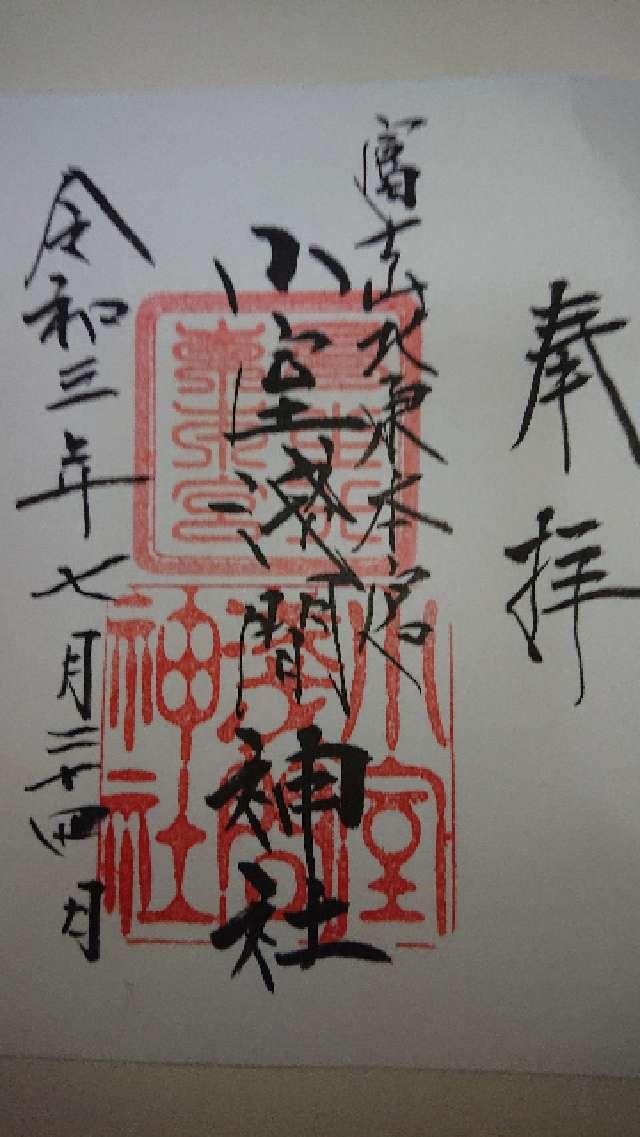 奉拝
富士山北東本宮
小室浅間神社
令和三年七月二十四日
小室浅間神社